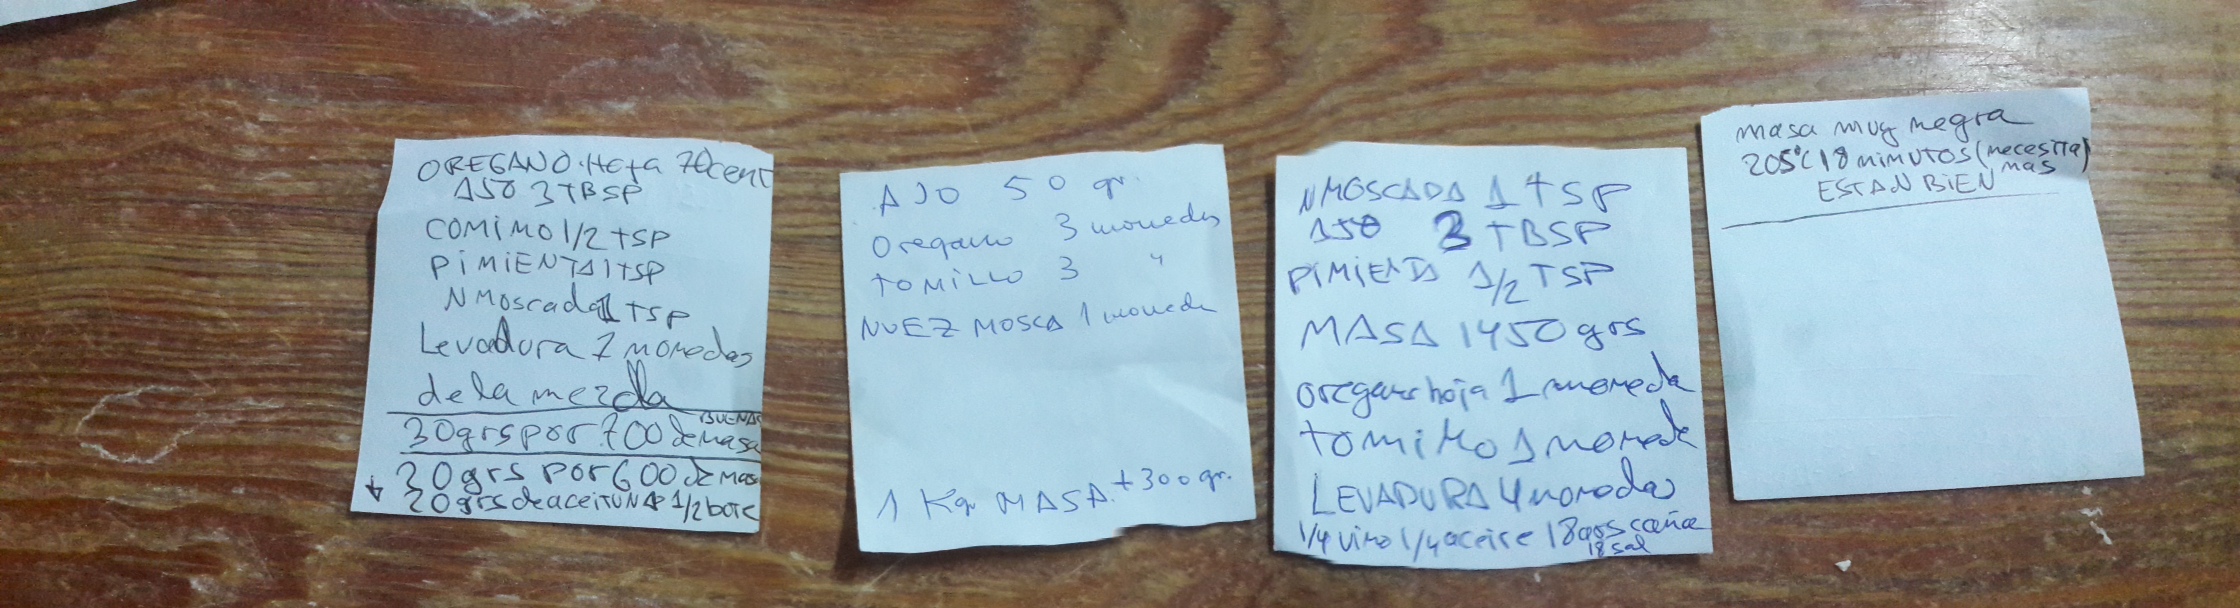 OREGANO HOJA 70 cent
AJO 3 TBSP
COMINO 1/2 TSP
PIMIENTA 1 TSP
N Moscada 1 TSP
Levadura 7 monedas
de la mezcla
BUENAS
30 grs por 700 de masa
20 grs por 600 de masa
20 grs de aceitunas 1/2 bote
AJO 50 gr.
Oregano 3 monedas
TOMILLO 3 "
NUEZ MOSCA 1 moneda
1 Kg MASA. + 300 gr.
N MOSCADA 1 TSP
AJO 3 TBSP
PIMIENTA 1/2 TSP
MASA 1450 grs
oregano hoja 1 moneda
tomillo 1 moneda
LEVADURA 4 monedas
1/4 vino 1/4 aceite 18 grs caña
18 sal
masa muy negra
205°C 18 minutos (necesita)
mas
ESTAN BIEN